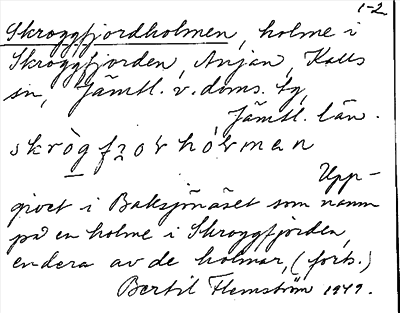 1-2
Skroggfjordholmen, holme i
Skroggfjorden, Anjan, Kalls
sn, Jämtl. v. doms. tg,
Jämtl. län.
skrògfʒorhó̀rman
Upp-
givet i Baksjönäset som namn
på en holme i Skroggfjorden,
endera av de holmar, (forts.)
Bertil Flemström 1949.